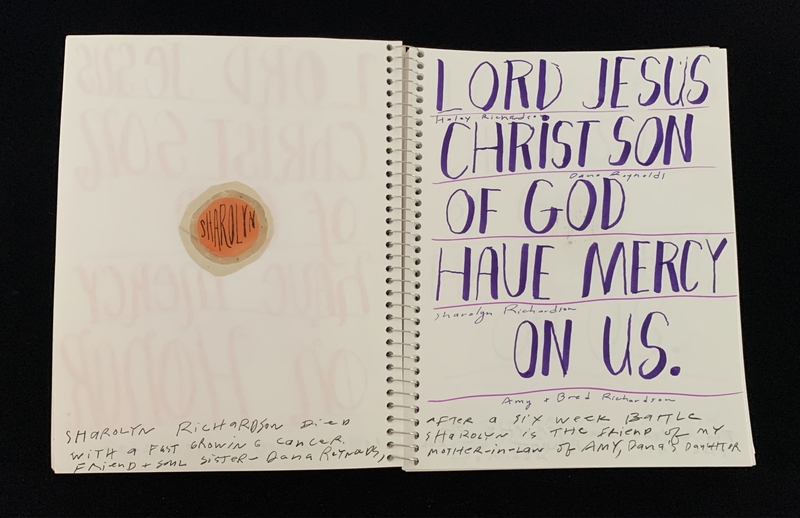 SHAROLYN
SHAROLYN RICHARDSON DiED
WiTH A FAST GROWING CANCER.
FRiEND + SOUL SiSTER - DANA REYNOLDS,
LORD JESUS
Haley Richardson
CHRiST SON
Dana Reynolds
OF GOD
HAVE MERCY
Sharolyn Richardson
ON US.
Amy + Brad Richardson
AFTER A SiX WEEK BATTLE
SHAROLYN iS THE FRiEND OF MY
MOTHER-iN-LAW OF AMY, DANA'S DAUGHTER